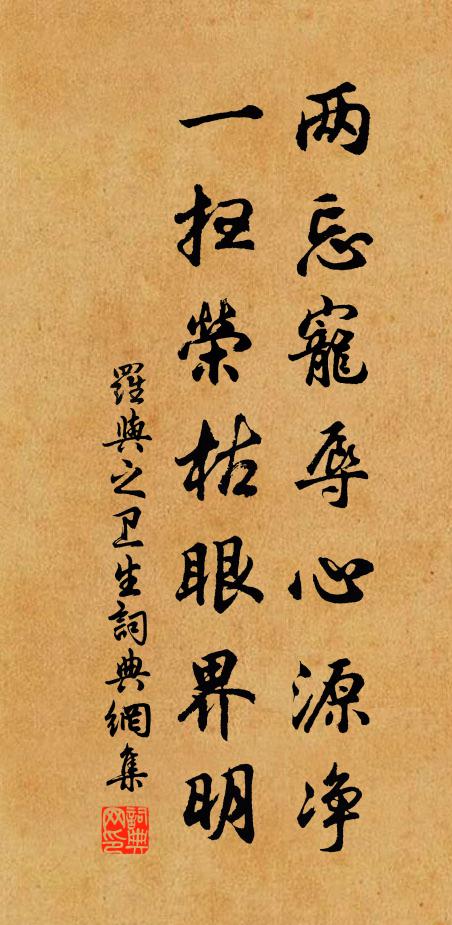 两忘寵辱心源净
一扫榮枯眼界明
羅與之卫生詞典網集
詞典网印